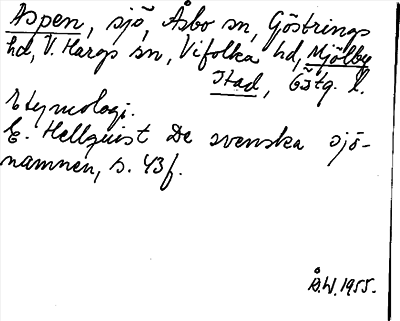 Aspen, sjö, Åsbo sn, Göstrings
hd, V. Hargs sn, Vifolka hd, Mjölby
stad, Östg. l.
Etymologi.
E. Hellquist De svenska sjö-
namnen, s. 43f.
Å.W. 1955.